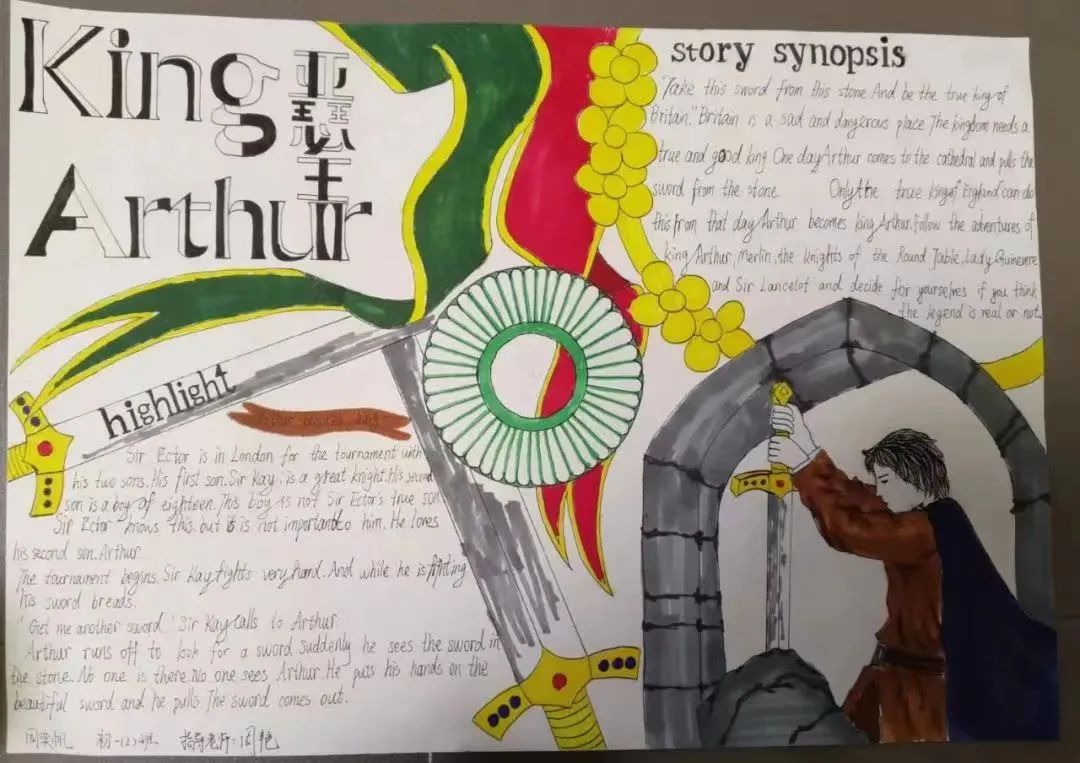 King
Arthur
亚瑟王
story synopsis
"Take this sword from this stone And be the true king of
Britain." Britain is a sad and dangerous place The kingdom needs a
true and good king One day Arthur comes to the cathedral and pulls the
sword from the stone. Only the true king of England can do
this from that day Arthur becomes king Arthur. Follow the adventures of
king Arthur, Merlin, the knights of the Round Table, Lady Guinevere
and Sir Lancelot and decide for yourselves if you think
the legend is real or not.
highlight
Arthur becomes king
Sir Ector is in London for the tournament with
his two sons. His first son, Sir Kay, is a great knight. His second
son is a boy of eighteen. This boy is not Sir Ector's true son
Sir Ector knows this. but it is not important to him. He loves
his second son. Arthur
The tournament begins. Sir Kay fights very hard. And while he is fighting
his sword breads.
"Get me another sword." Sir Kay calls to Arthur.
Arthur runs off to look for a sword. Suddenly he sees the sword in
the stone. No one is there. No one sees Arthur. He puts his hands on the
beautiful sword and he pulls. The sword comes out.
初一(2)班 指导老师:周艳